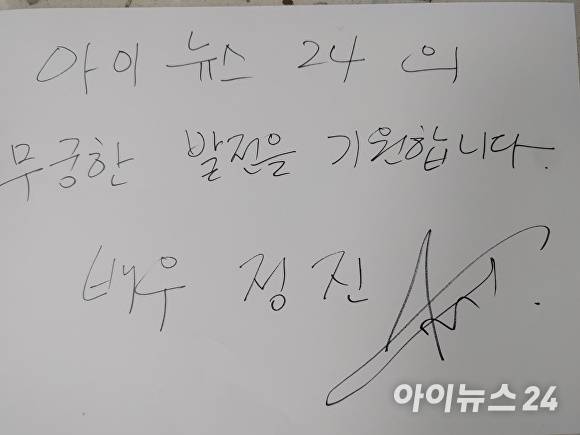 아이뉴스 24 의
무궁한 발전을 기원합니다.
배우 정진
아이뉴스24